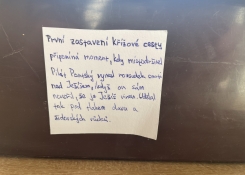 První zastavení křížové cesty
připomíná moment, kdy místodržící
Pilát Pontský vynesl rozsudek smrti
nad Ježíšem, když on sám
nevěřil, že je Ježíš vinen. Udělal
tak pod tlakem davu a
židovských vůdců.